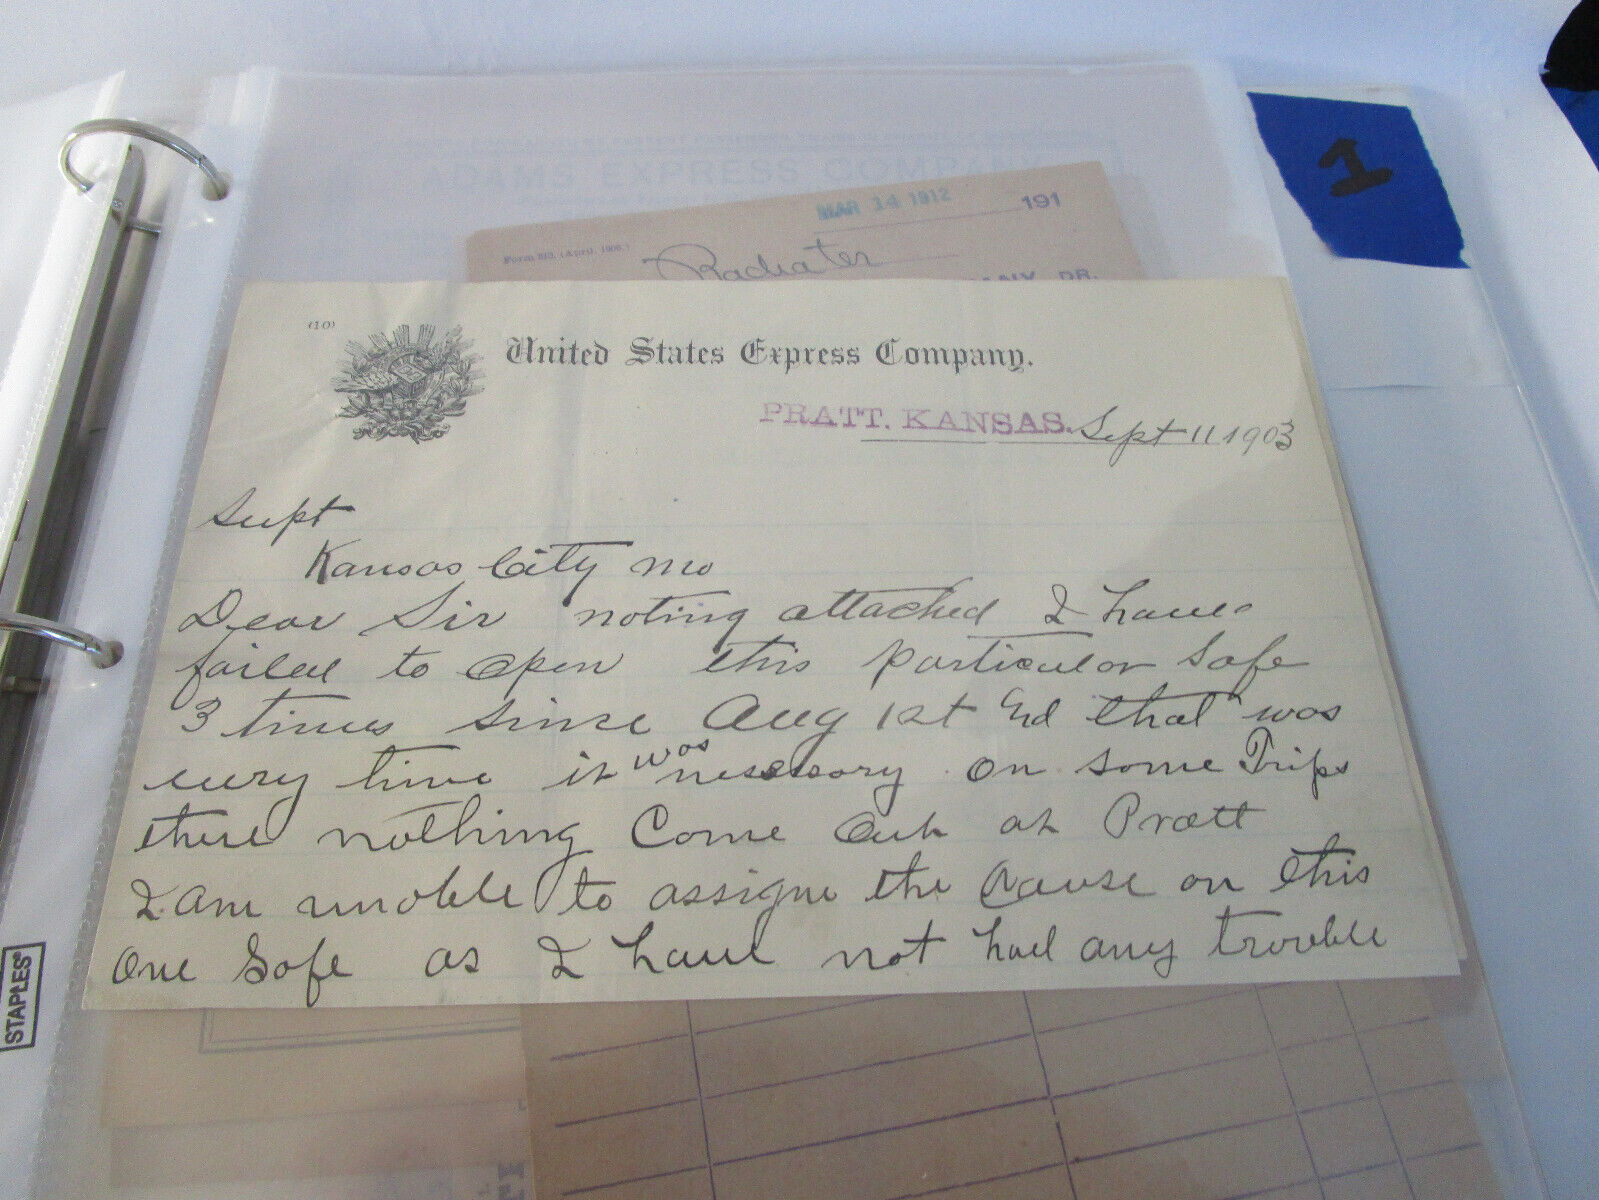 ADAMS EXPRESS COMPANY
MAR 14 1912 191
Form 313. (April, 1909.)
Radiater
ANY, DR.
1
(10)
United States Express Company.
PRATT. KANSAS. Sept 11 1903
Supt
Kansas City Mo
Dear Sir noting attached I have
failed to open this particular Safe
3 times since Aug 1st and that was
every time it was nessessory on some Trips
there nothing Come Out at Pratt
I am unable to assigne the Cause on this
One Safe as I have not had any trouble
STAPLES